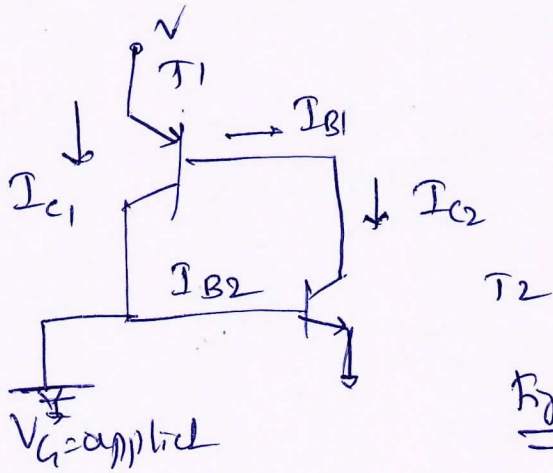 V
T1
I_B1
I_C1
I_C2
I_B2
T2
V_G=applied
Fig